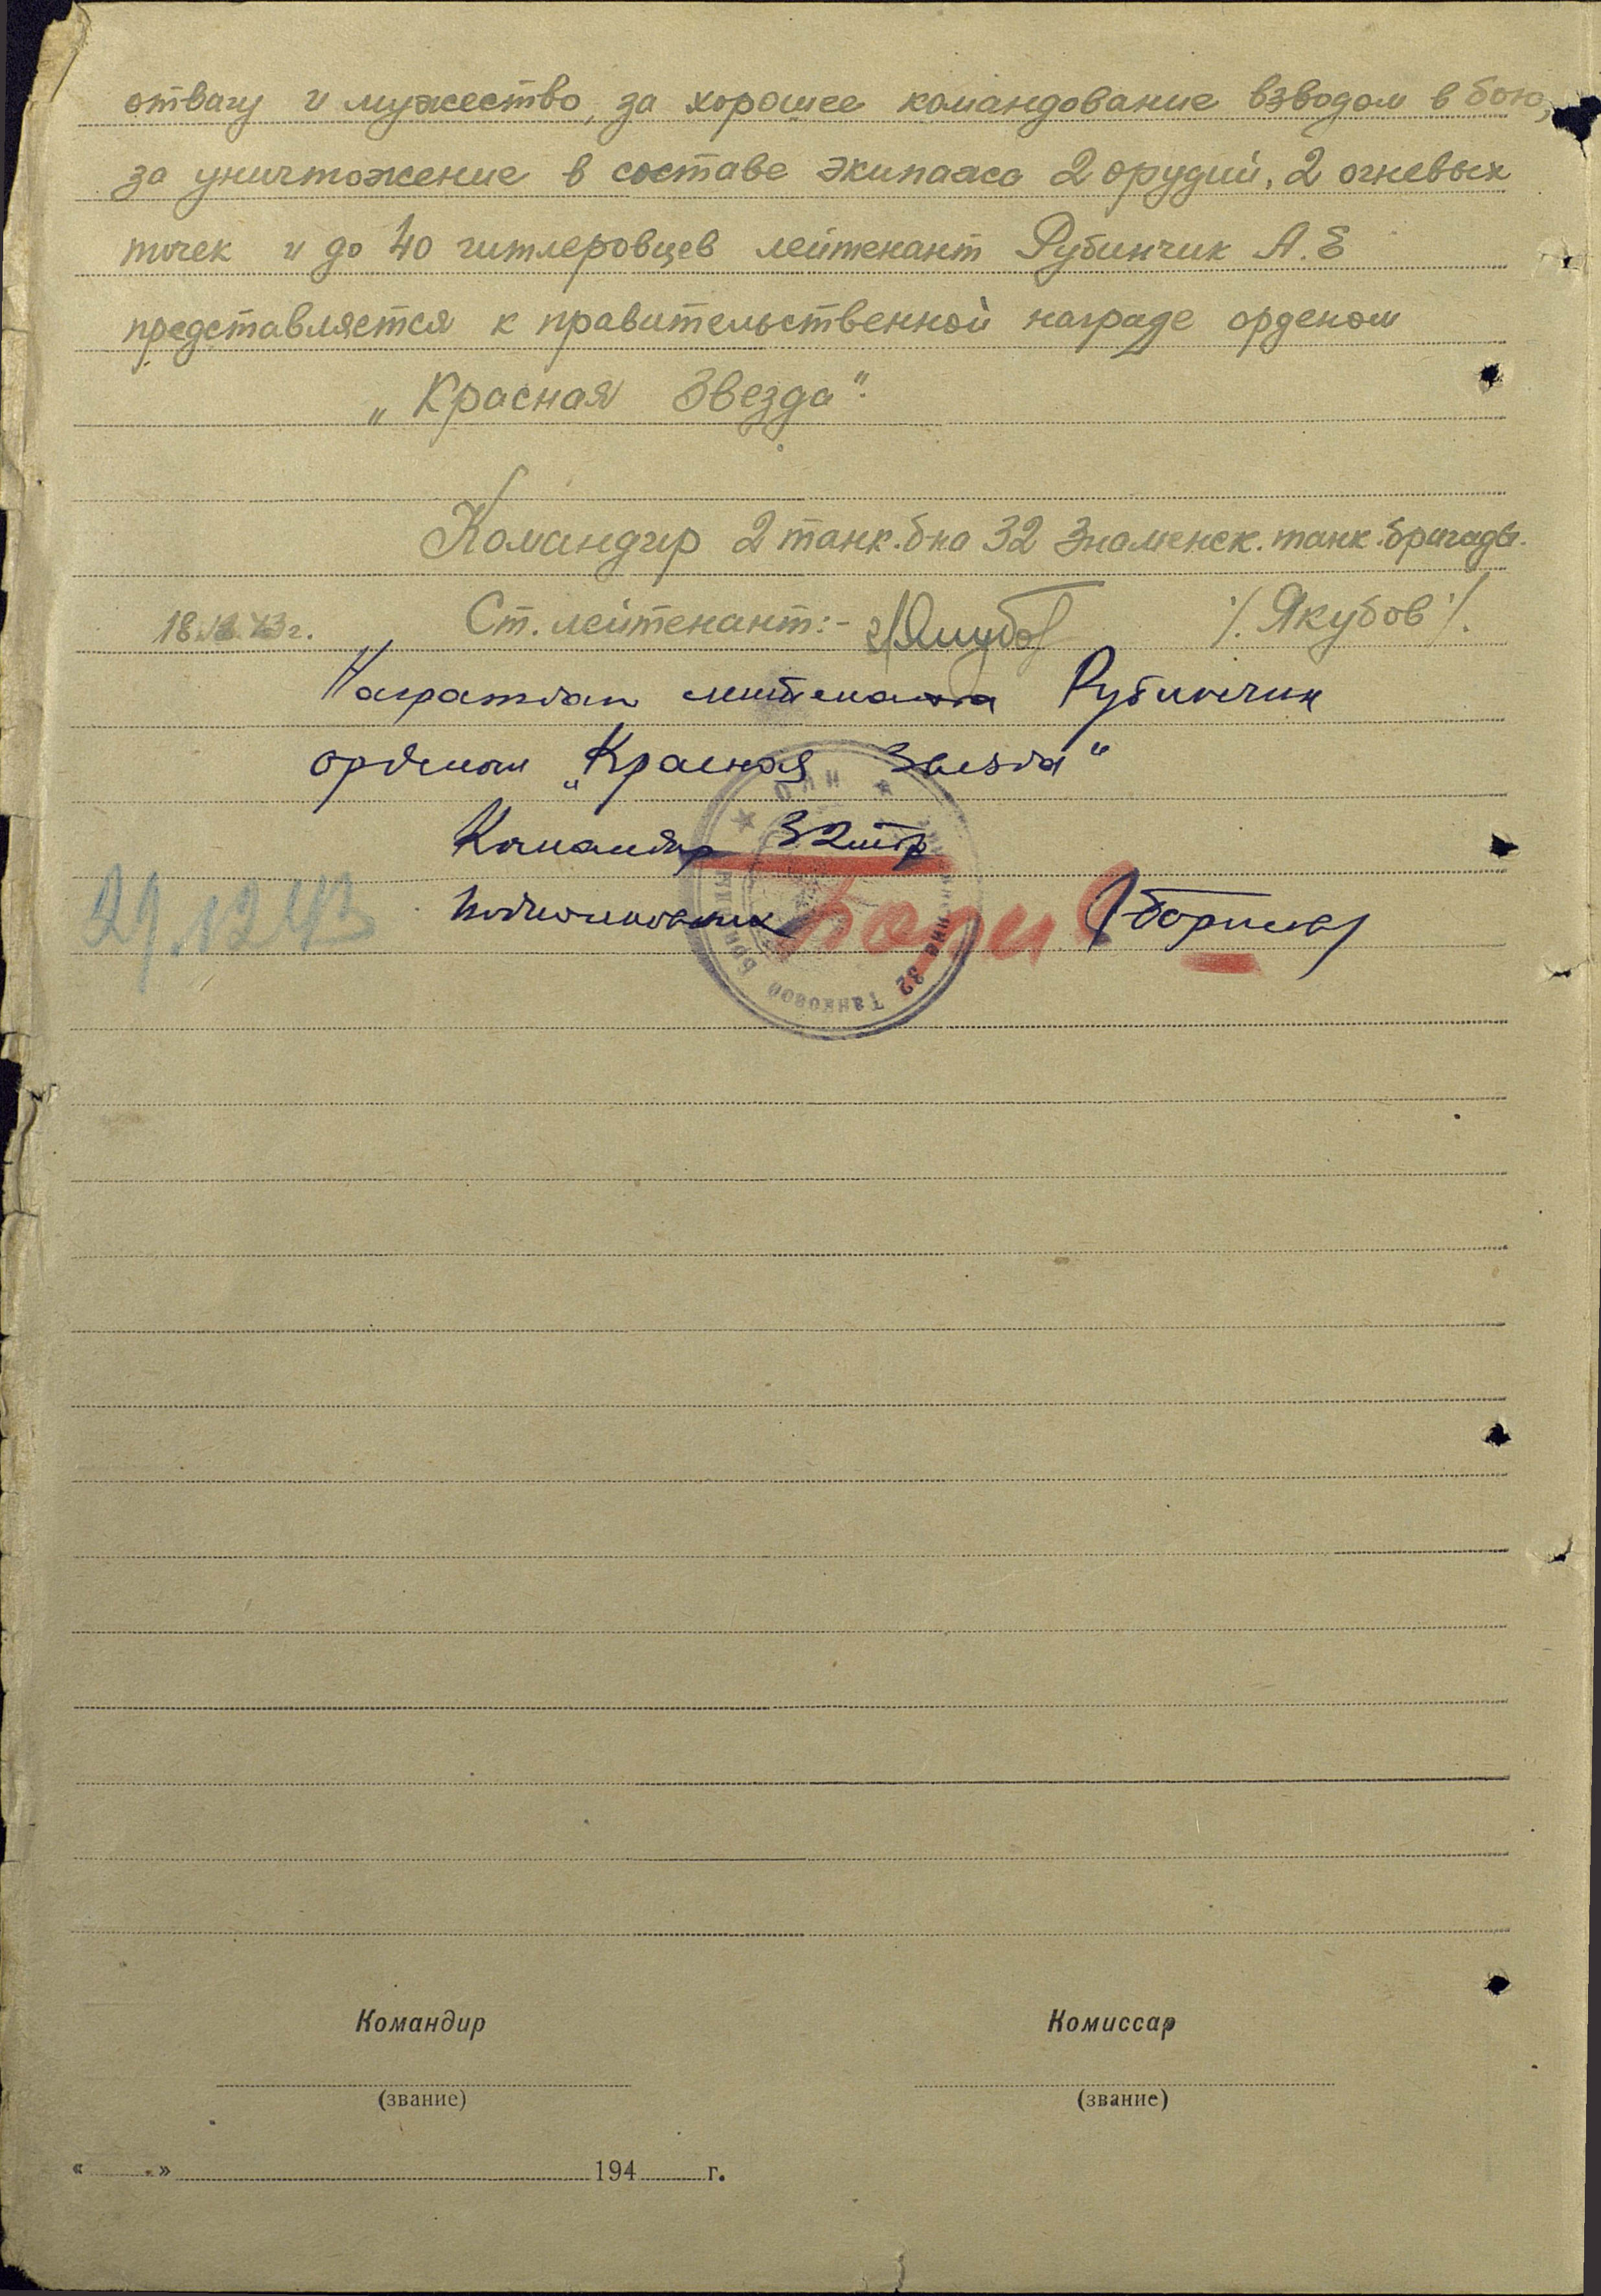 отвагу и мужество, за хорошее командование взводом в бою,
за уничтожение в составе экипажа 2 орудий, 2 огневых
точек и до 40 гитлеровцев лейтенант Рубинчик А.Е
представляется к правительственной награде орденом
„Красная Звезда".
Командир 2 танк. б-на 32 Знаменск. танк. бригады.
18.12.43г. Ст. лейтенант:- Якубов /Якубов/.
Награждан лейтенанта Рубинчик
орденом „Красная Звезда"
Командир 32тбр
29.12.43 подполковник Борисов
32 Танковой
Командир Комиссар
(звание) (звание)
« » 194 г.